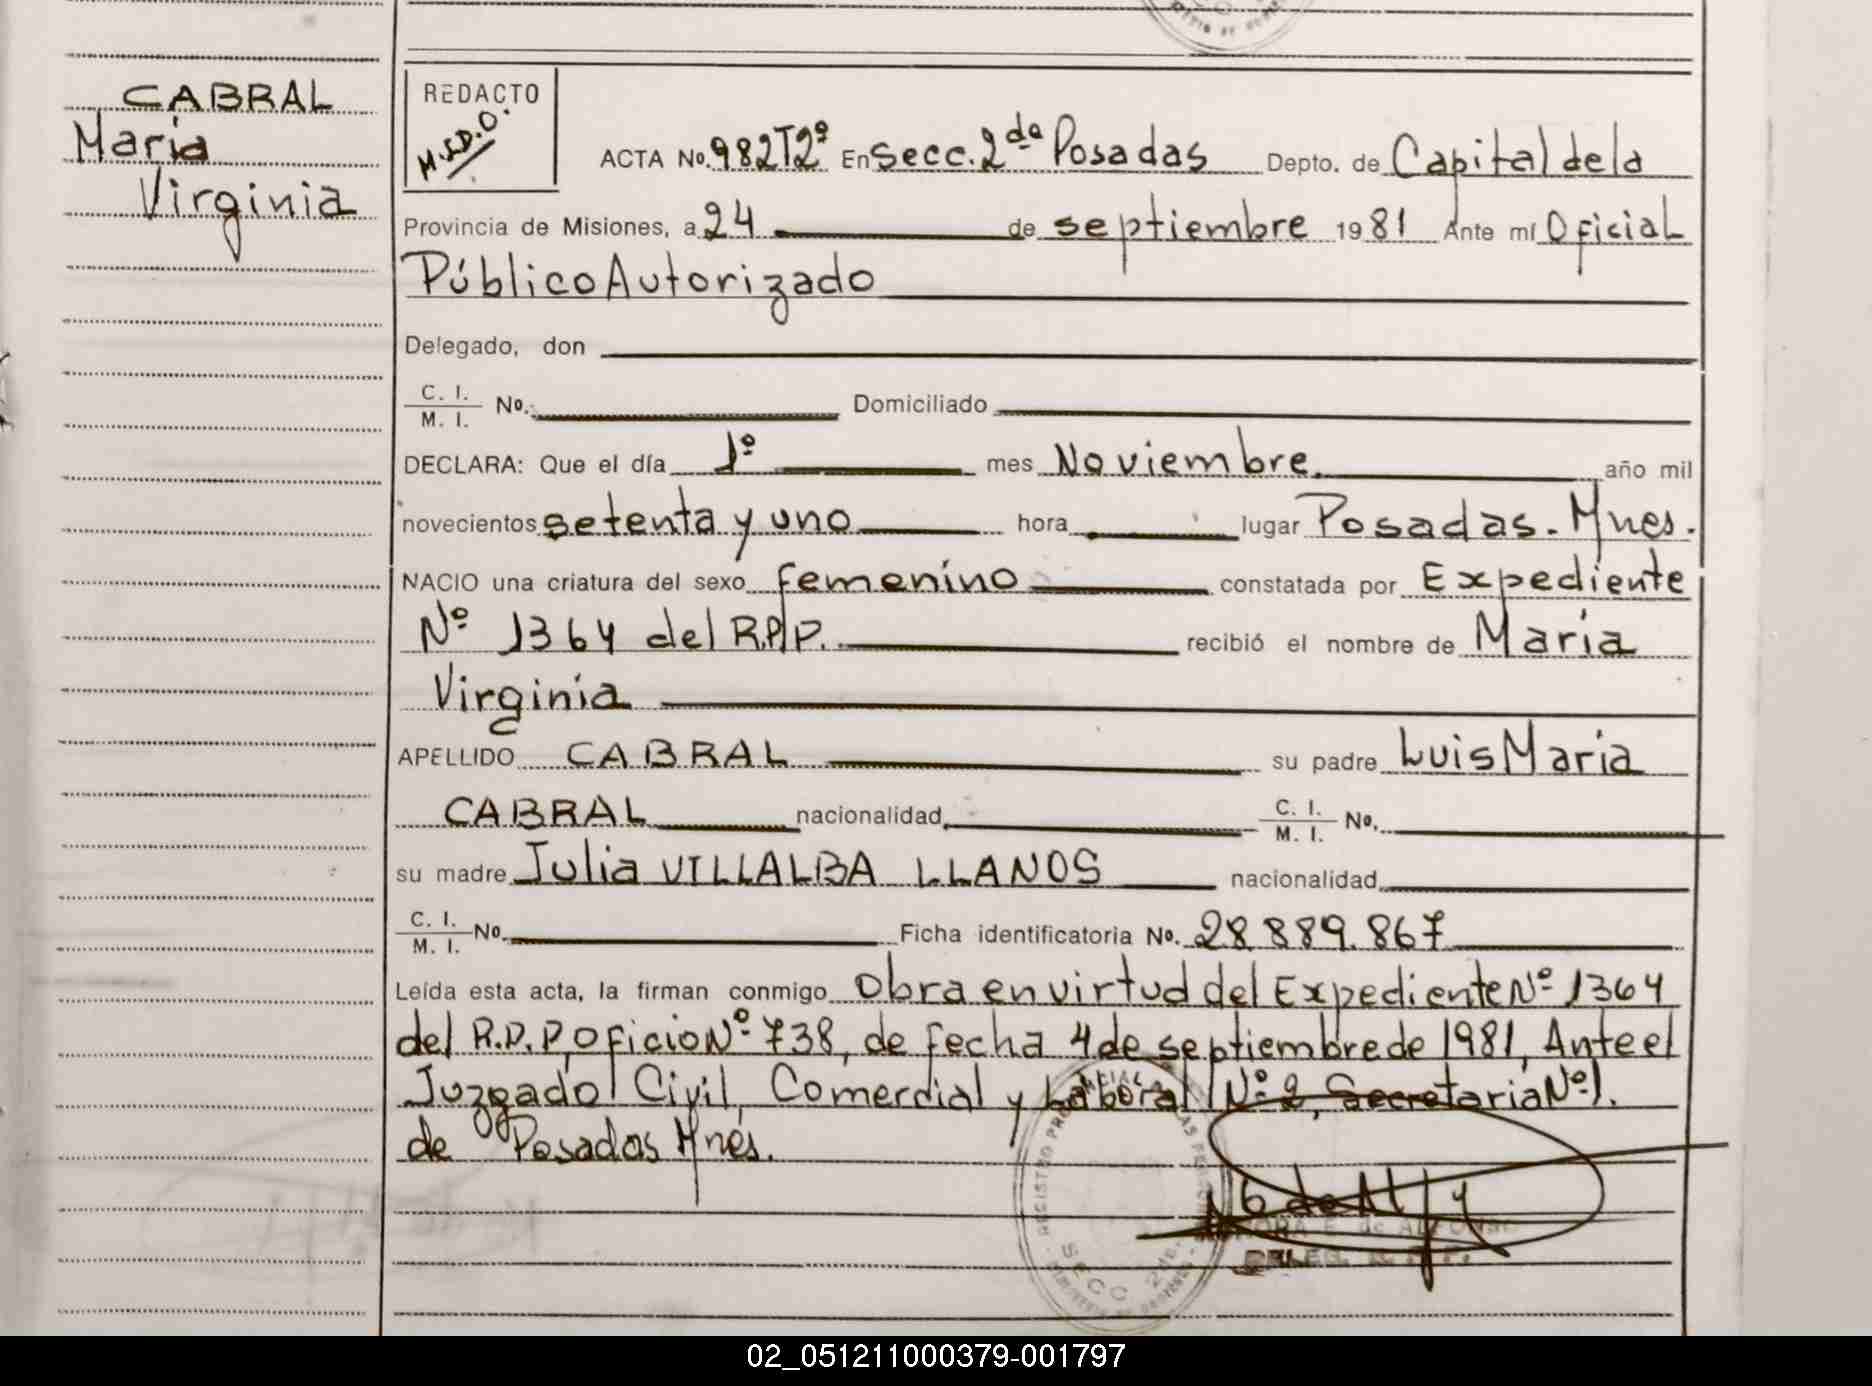 CABRAL
María
Virginia
REDACTO
M.S.D.O.
ACTA No. 982T2º En Secc. 2da Posadas Depto. de Capital de la
Provincia de Misiones, a 24 de septiembre 1981 Ante mí Oficial
Público Autorizado
Delegado, don
C. I.
M. I. No. Domiciliado
DECLARA: Que el día 1º mes Noviembre. año mil
novecientos setenta y uno hora lugar Posadas. Mnes.
NACIO una criatura del sexo femenino constatada por Expediente
Nº 1364 del R.P.P. recibió el nombre de María
Virginia
APELLIDO CABRAL su padre Luis María
CABRAL nacionalidad C. I.
M. I. No.
su madre Julia VILLALBA LLANOS nacionalidad
C. I.
M. I. No. Ficha identificatoria No. 28.889.867
Leída esta acta, la firman conmigo Obra en virtud del Expediente Nº 1364
del R.P.P, oficio Nº 738, de fecha 4 de septiembre de 1981, Ante el
Juzgado Civil, Comercial y Laboral Nº 2, Secretaria Nº 1.
de Posadas Mnes.
SECC 2
DELEG. R. P. P.
02_051211000379-001797